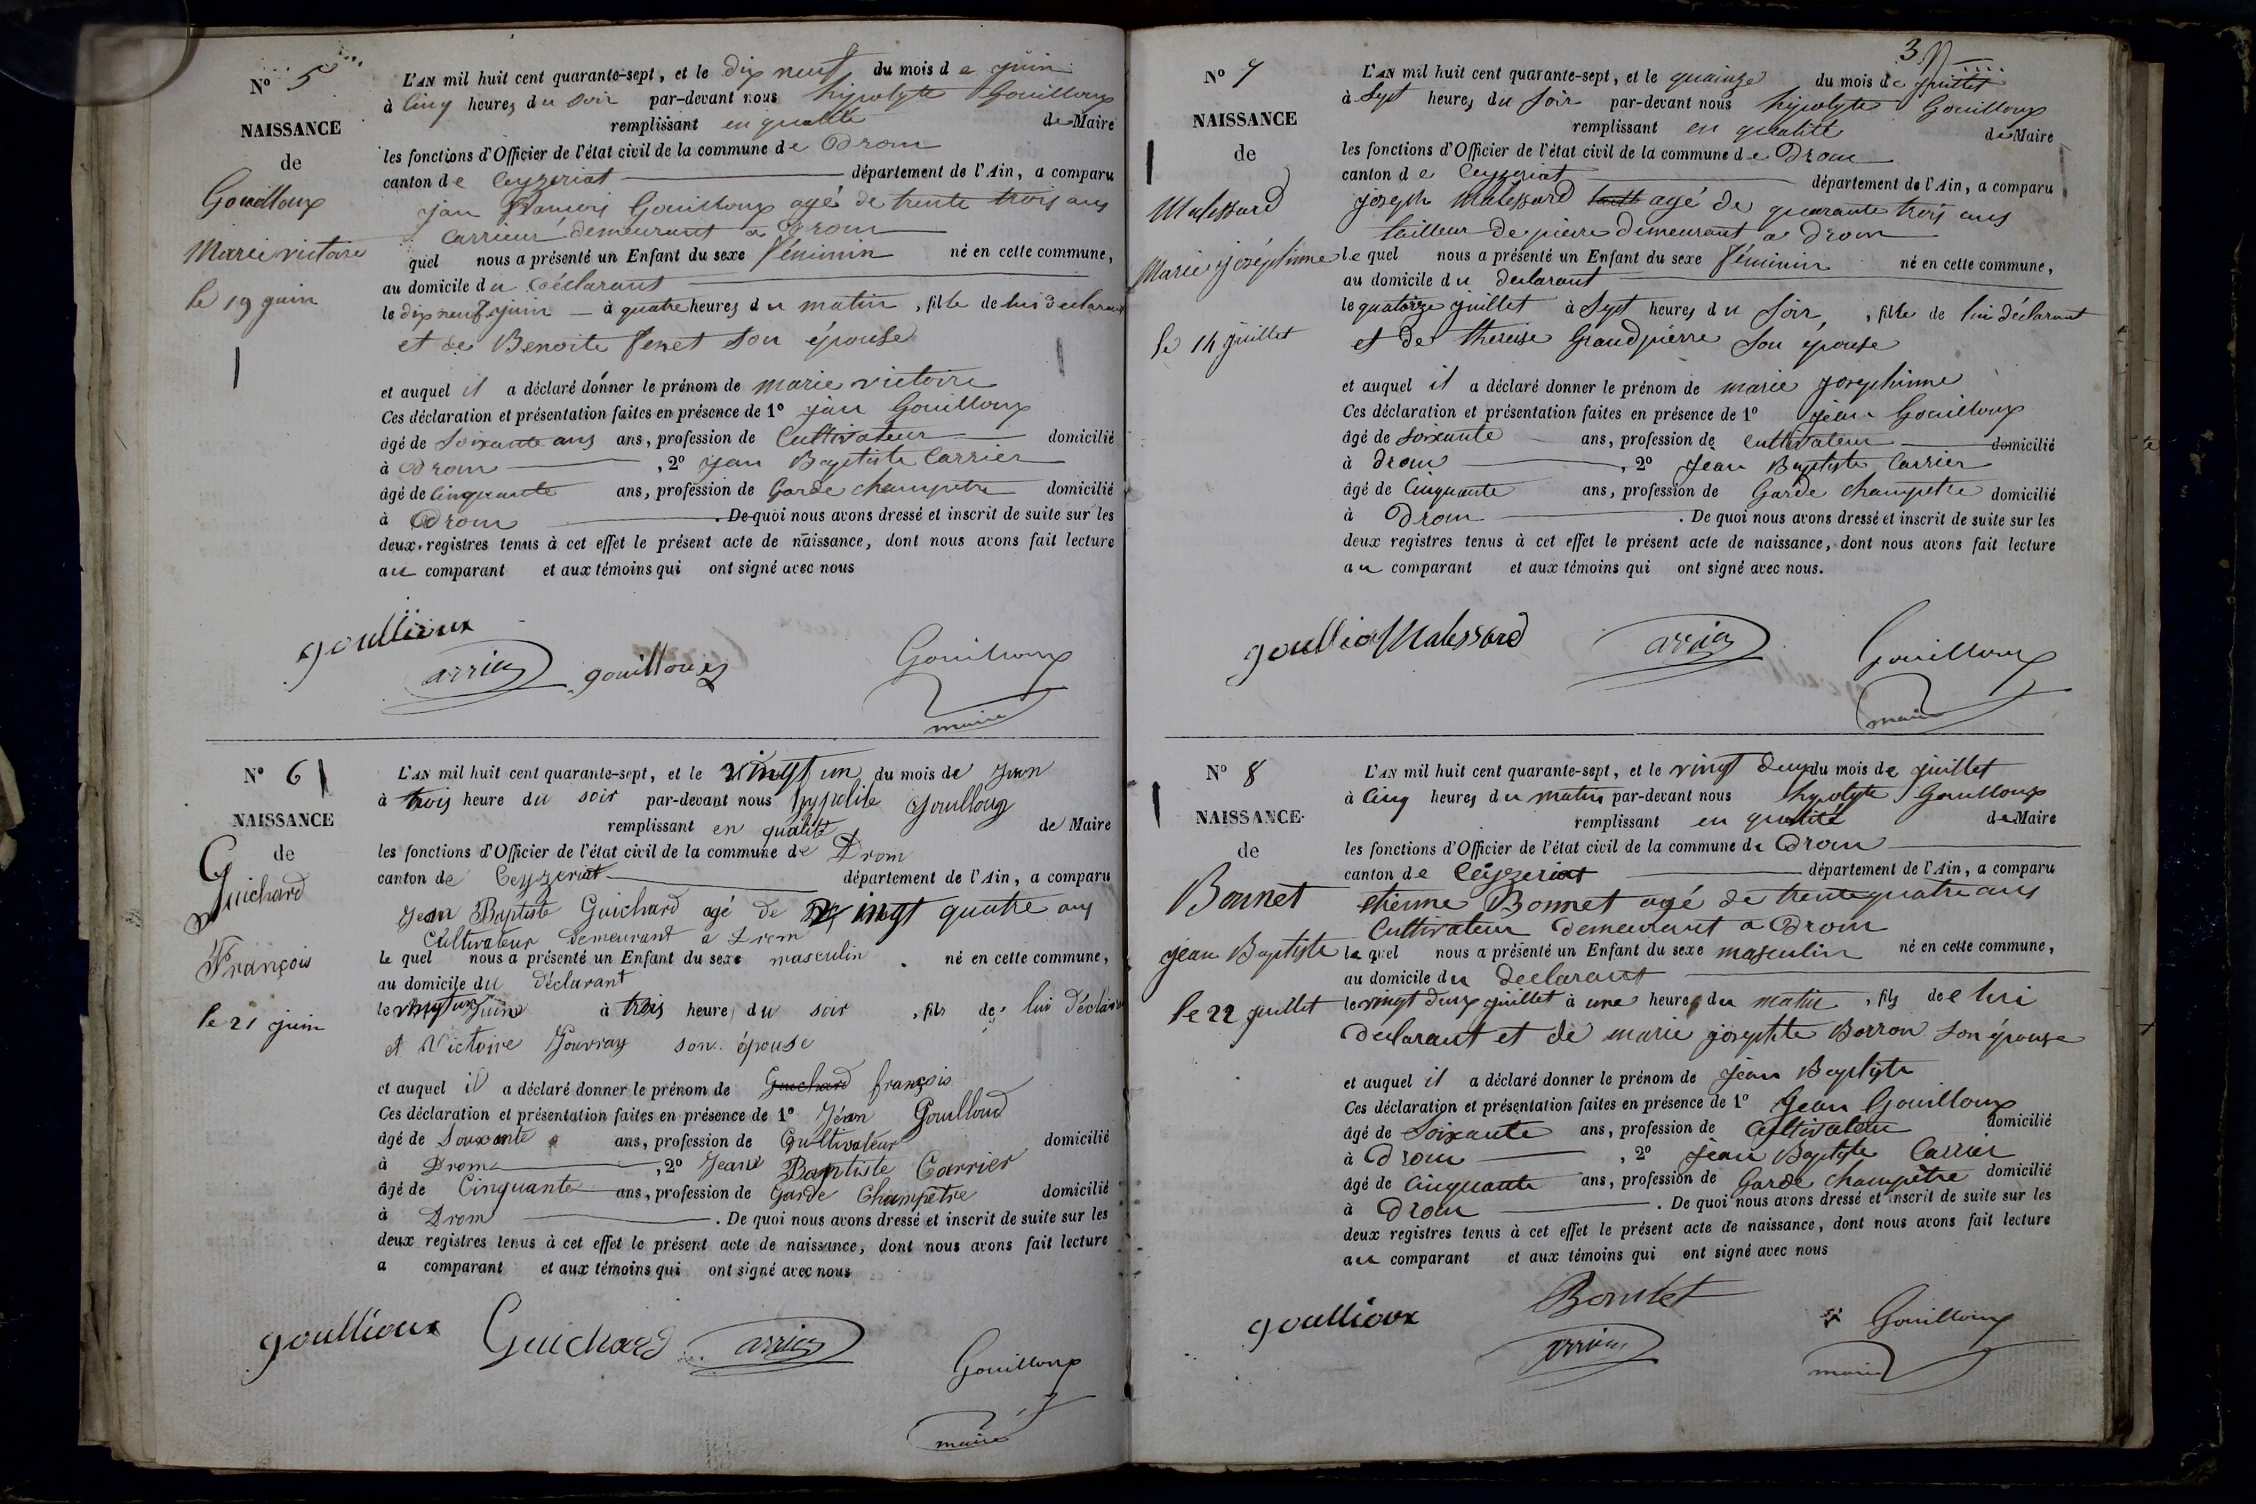 N° 5
NAISSANCE
de
Gouilloux
Marie victoire
le 19 juin
L'AN mil huit cent quarante-sept, et le dix neuf du mois de juin
à Cinq heures du soir par-devant nous hipolyte Gouilloux
remplissant en qualité de Maire
les fonctions d'Officier de l'état civil de la commune de Drom
canton de Ceyzeriat département de l'Ain, a comparu
jean François Gouilloux agé de trente trois ans
Carrieur demeurant a Drom
quel nous a présenté un Enfant du sexe féminin né en cette commune,
au domicile du déclarant
le dix neuf juin à quatre heures du matin, fille de lui déclarant
et de Benoite fenet son épouse
et auquel il a déclaré donner le prénom de marie victoire
Ces déclaration et présentation faites en présence de 1° jean Gouilloux
âgé de soixante ans ans, profession de Cultivateur domicilié
à Drom, 2° jean Baptiste Carrier
âgé de Cinquante ans, profession de Garde champetre domicilié
à Drom. De quoi nous avons dressé et inscrit de suite sur les
deux registres tenus à cet effet le présent acte de naissance, dont nous avons fait lecture
au comparant et aux témoins qui ont signé avec nous
goullioux
arrier gouilloux Gouilloux
maire
N° 6
NAISSANCE
de
Guichard
François
le 21 juin
L'AN mil huit cent quarante-sept, et le vingt un du mois de Juin
à trois heure du soir par-devant nous hypolite Gouilloux
remplissant en qualité de Maire
les fonctions d'Officier de l'état civil de la commune de Drom
canton de Ceyzeriat département de l'Ain, a comparu
Jean Baptiste Guichard agé de vingt quatre ans
Cultivateur Demeurant a Drom
le quel nous a présenté un Enfant du sexe masculin né en cette commune,
au domicile du Déclarant
le vingt un Juin à trois heure, du soir, fils de lui Déclarant
et Victoire Gouvray son épouse
et auquel il a déclaré donner le prénom de Guichard françois
Ces déclaration et présentation faites en présence de 1° Jéan Gouilloud
âgé de Souxante ans, profession de Cultivateur domicilié
à Drom, 2° Jean Baptiste Carrier
âgé de Cinquante ans, profession de Garde Champêtre domicilié
à Drom. De quoi nous avons dressé et inscrit de suite sur les
deux registres tenus à cet effet le présent acte de naissance, dont nous avons fait lecture
a comparant et aux témoins qui ont signé avec nous
goullioux Guichard arrier
Gouilloux
maire
3
N° 7
NAISSANCE
de
Malessard
Marie joséphinne
le 14 juillet
L'AN mil huit cent quarante-sept, et le quainze du mois de juillet
à Sept heures du soir par-devant nous hipolyte Gouilloux
remplissant en qualité de Maire
les fonctions d'Officier de l'état civil de la commune de Drom
canton de Ceyzeriat département de l'Ain, a comparu
joseph Malessard agé de quarante trois ans
tailleur de pierre demeurant a drom
le quel nous a présenté un Enfant du sexe féminin né en cette commune,
au domicile du declarant
le quatorze juillet à Sept heures du soir, fille de lui déclarant
et de thereise Grandpierre son épouse
et auquel il a déclaré donner le prénom de marie josephinne
Ces déclaration et présentation faites en présence de 1° jéan Gouilloux
âgé de soixante ans, profession de Cultivateur domicilié
à drom, 2° Jean Baptiste Carrier
âgé de Cinquante ans, profession de Garde champetre domicilié
à Drom. De quoi nous avons dressé et inscrit de suite sur les
deux registres tenus à cet effet le présent acte de naissance, dont nous avons fait lecture
au comparant et aux témoins qui ont signé avec nous.
goullio Malessard arrier Gouilloux
maire
N° 8
NAISSANCE
de
Bonnet
jean Baptiste
le 22 juillet
L'AN mil huit cent quarante-sept, et le vingt deux du mois de juillet
à Cinq heures du matin par-devant nous hipolyte Gouilloux
remplissant en qualité de Maire
les fonctions d'Officier de l'état civil de la commune de Drom
canton de Ceyzeriat département de l'Ain, a comparu
etienne Bonnet agé de trente quatre ans
Cultivateur demeurant a Drom
le quel nous a présenté un Enfant du sexe masculin né en cette commune,
au domicile du declarant
le vingt deux juillet à une heure du matin, fils de lui
declarant et de marie josephte Borron son épouse
et auquel il a déclaré donner le prénom de jean Baptiste
Ces déclaration et présentation faites en présence de 1° Jean Gouilloux
âgé de soixante ans, profession de Cultivateur domicilié
à Drom, 2° jean Baptiste Carrier
âgé de Cinquante ans, profession de Garde champêtre domicilié
à Drom. De quoi nous avons dressé et inscrit de suite sur les
deux registres tenus à cet effet le présent acte de naissance, dont nous avons fait lecture
au comparant et aux témoins qui ont signé avec nous
goullioux Bonnet Gouilloux
arrier maire